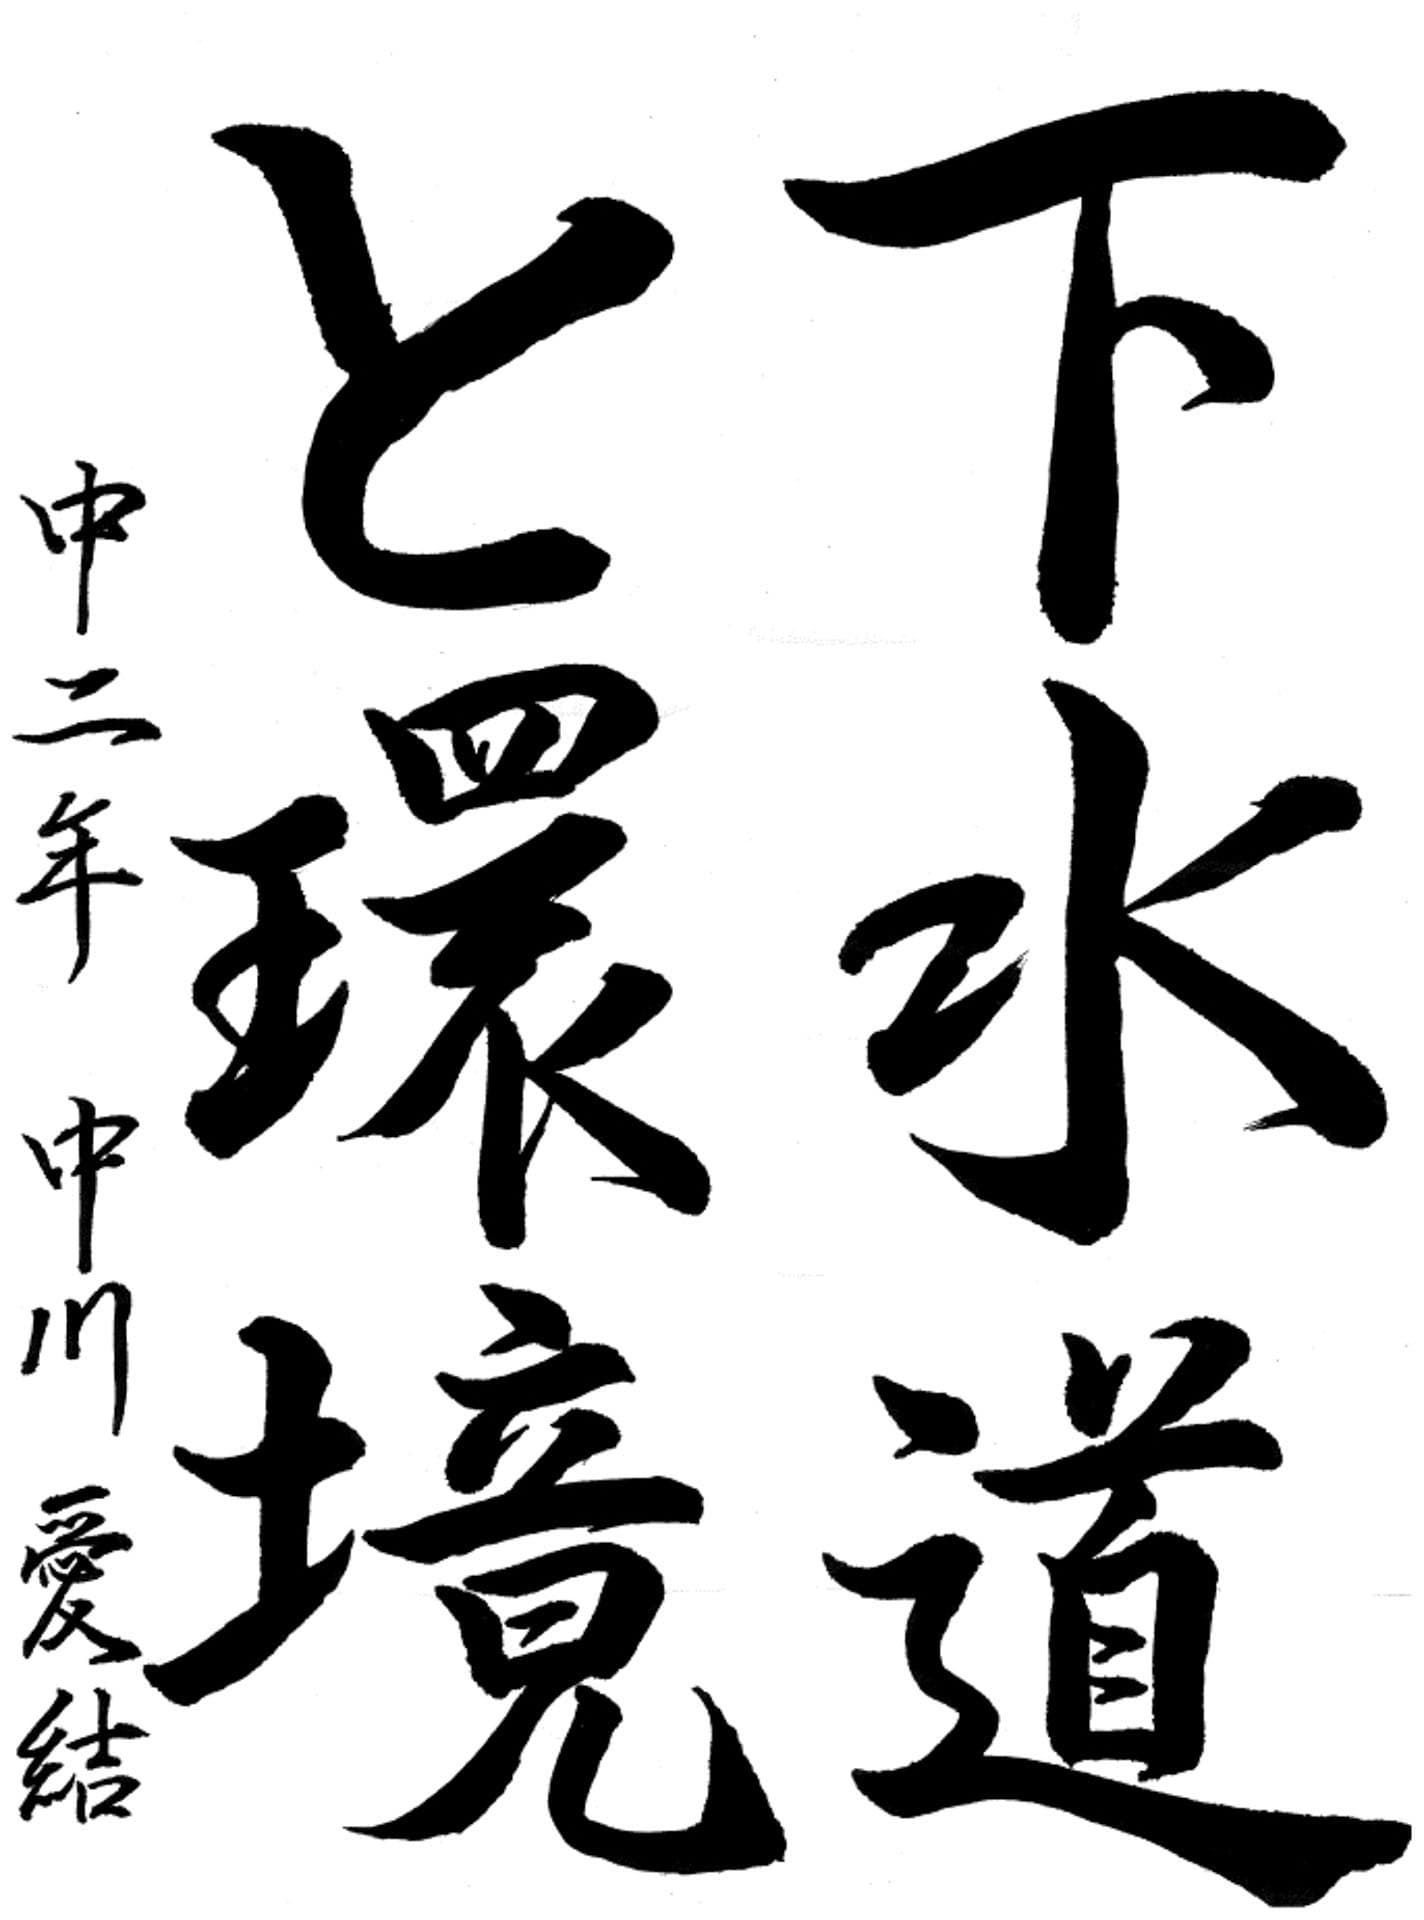 下水道
と環境
中二年 中川 愛結